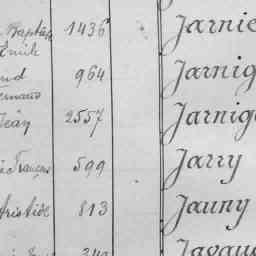 Baptiste 1436 Jarnie
Emile
964 Jarnig
Jean 2557 Jarnig
François 599 Jarry
Aristide 813 Jauny